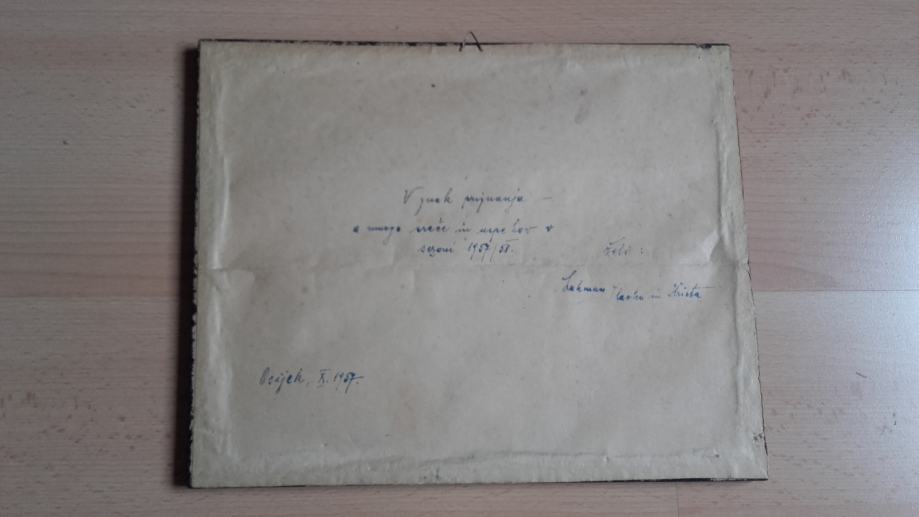 V znak priznanja –
a mnogo sreče in uspehov v
sezoni 1957/58.
želi:
Lahman in Krista
Osijek, X. 1957.